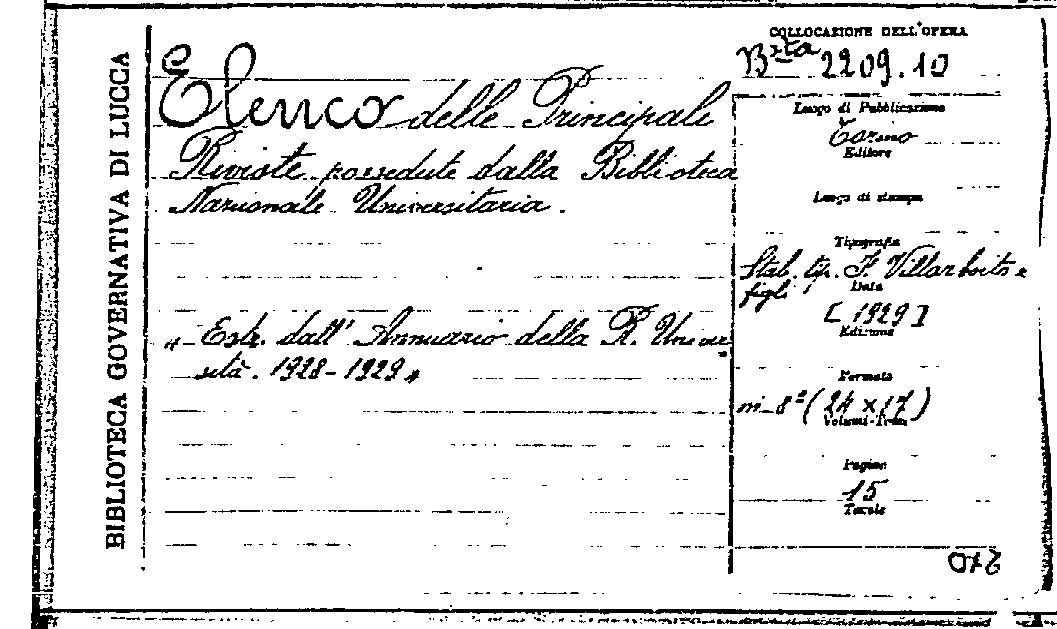 BIBLIOTECA GOVERNATIVA DI LUCCA
Elenco delle Principali
Riviste possedute dalla Biblioteca
Nazionale Universitaria.
« Estr. dall' Annuario della R. Univer
sità. 1928-1929 »
COLLOCAZIONE DELL'OPERA
Bsta 2209.10
Luogo di Pubblicazione
Torino
Editore
Luogo di stampa
Tipografia
Stab. tip. F. Villarboito e
Data
figli
[1929]
Edizione
Formato
in-8° (24 x 17)
Volumi-Tomi
Pagine
15
Tavole